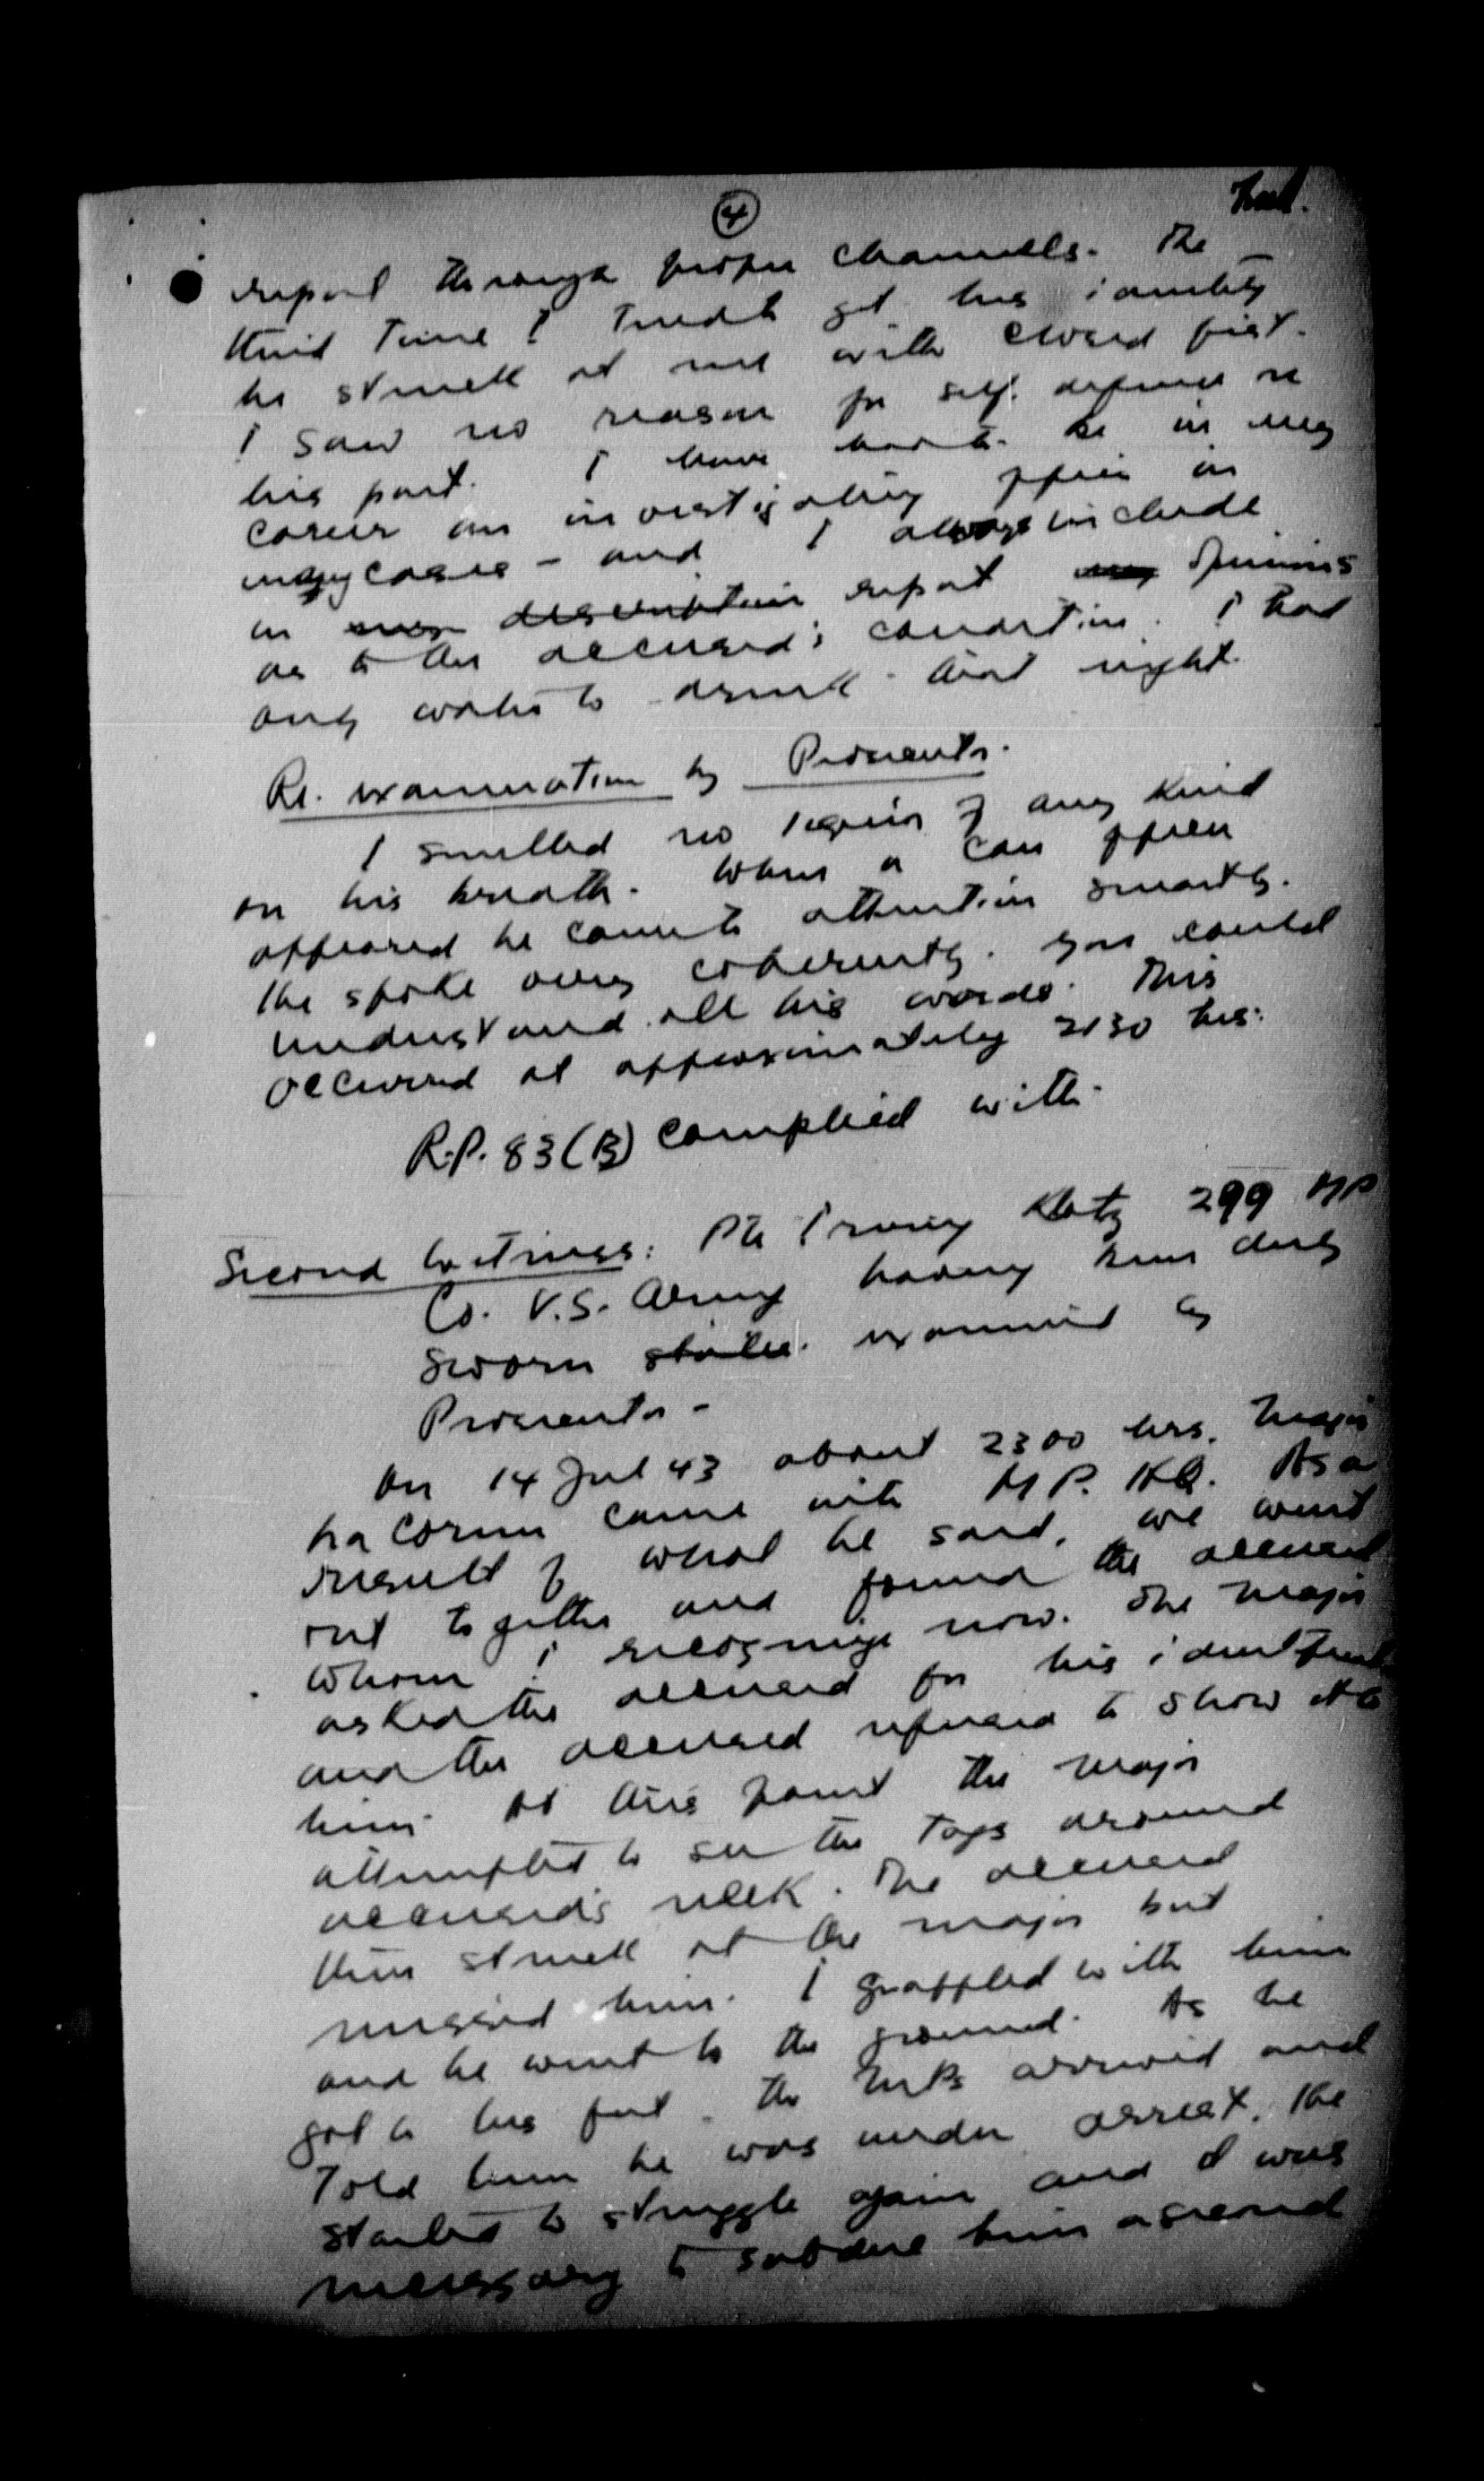 4
report through proper channells. The
third time I tried to get his identity
he struck at me with closed fist.
I saw no reason for self defence on
his part. I have had to be in my
career an investigating officer in
many cases - and I always include
in report opinions
as to the accused's condition. I had
only water to drink that night.
Re. examination by Prosecutor.
I smelled no liquor of any kind
on his breath. When a Can officer
appeared he came to attention smartly.
He spoke very coherently. You could
understand all his words. This
occurred at approximately 2130 hrs.
R.P. 83 (B) complied with.
Second Witness: Pte Irving Katz 299 MP
Co. U.S. Army having been duly
sworn states. examined by
Prosecutor -
On 14 Jul 43 about 2300 hrs. Major
came into M.P. HQ. As a
result of what he said, we went
out together and found the accused
whom I recognize now. The major
asked the accused for his
and the accused refused to show it to
him. At this point the major
attempted to see the tags around
accused's neck. The accused
then struck at the major but
missed him. I grappled with him
and he went to the ground. As he
got to his feet the arrived and
told him he was under arrest. He
started to struggle again and it was
necessary to subdue him a second